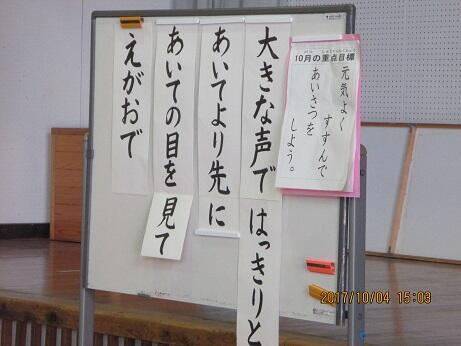 10月の重点目標
元気よく
すすんで
あいさつを
しよう。
大きな声ではっきりと
あいてより先に
あいての目を見て
えがおで
2017/10/04 15:03